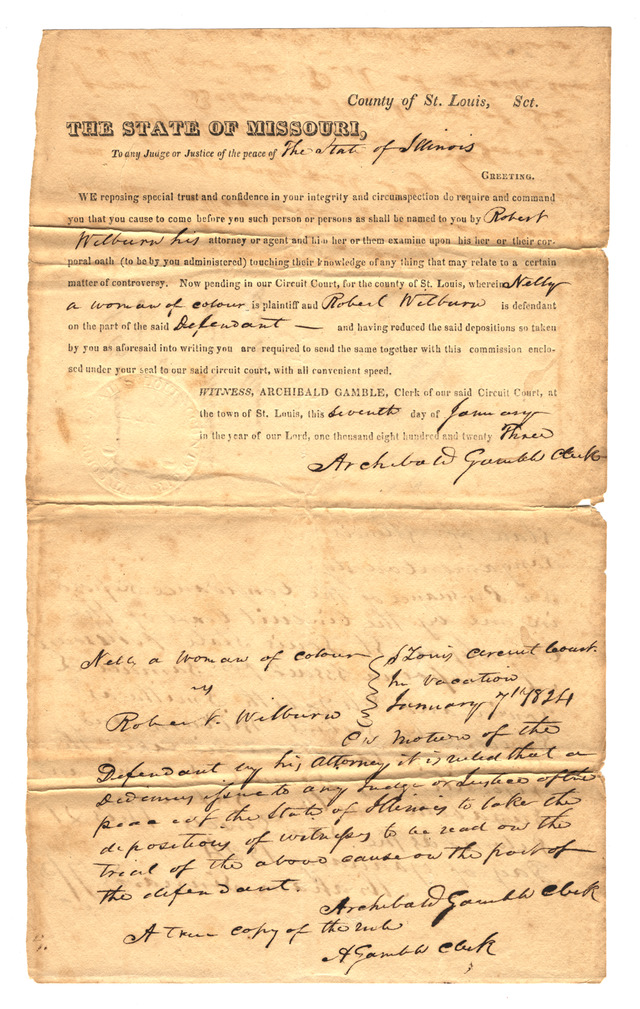 County of St. Louis, Sct.
THE STATE OF MISSOURI,
To any Judge or Justice of the peace of The State of Illinois
GREETING.
WE reposing special trust and confidence in your integrity and circumspection do require and command
you that you cause to come before you such person or persons as shall be named to you by Robert
Wilburn his attorney or agent and him her or them examine upon his her or their cor-
poral oath (to be by you administered) touching their knowledge of any thing that may relate to a certain
matter of controversy. Now pending in our Circuit Court, for the county of St. Louis, wherein Nelly
a woman of colour is plaintiff and Robert Wilburn is defendant
on the part of the said Defendant — and having reduced the said depositions so taken
by you as aforesaid into writing you are required to send the same together with this commission enclo-
sed under your seal to our said circuit court, with all convenient speed.
WITNESS, ARCHIBALD GAMBLE, Clerk of our said Circuit Court, at
the town of St. Louis, this seventh day of January
in the year of our Lord, one thousand eight hundred and twenty Three
Archibald Gamble Clerk
Nelly a woman of colour
vs
Robert Wilburn
St Louis Circuit Court
In vacation
January 7th 1824
On motion of the
Defendant by his Attorney it is ruled that a
Dedimus issue to any Judge or Justice of the
peace of the State of Illinois to take the
depositions of witnesses to be read on the
trial of the above cause on the part of
the defendant.
Archibald Gamble Clerk
A true copy of the rule
A Gamble Clerk